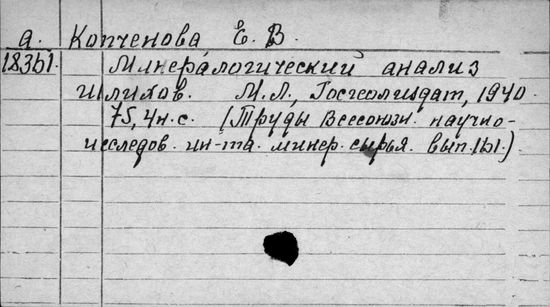 а. Копченова, Е. В.
18361. Минералогический анализ
шлихов. М.Л., Госгеолиздат, 1940.
75, 4н.с. (Труды Всесоюзн. научно-
исследов. ин-та. минер. сырья. вып. 161.)